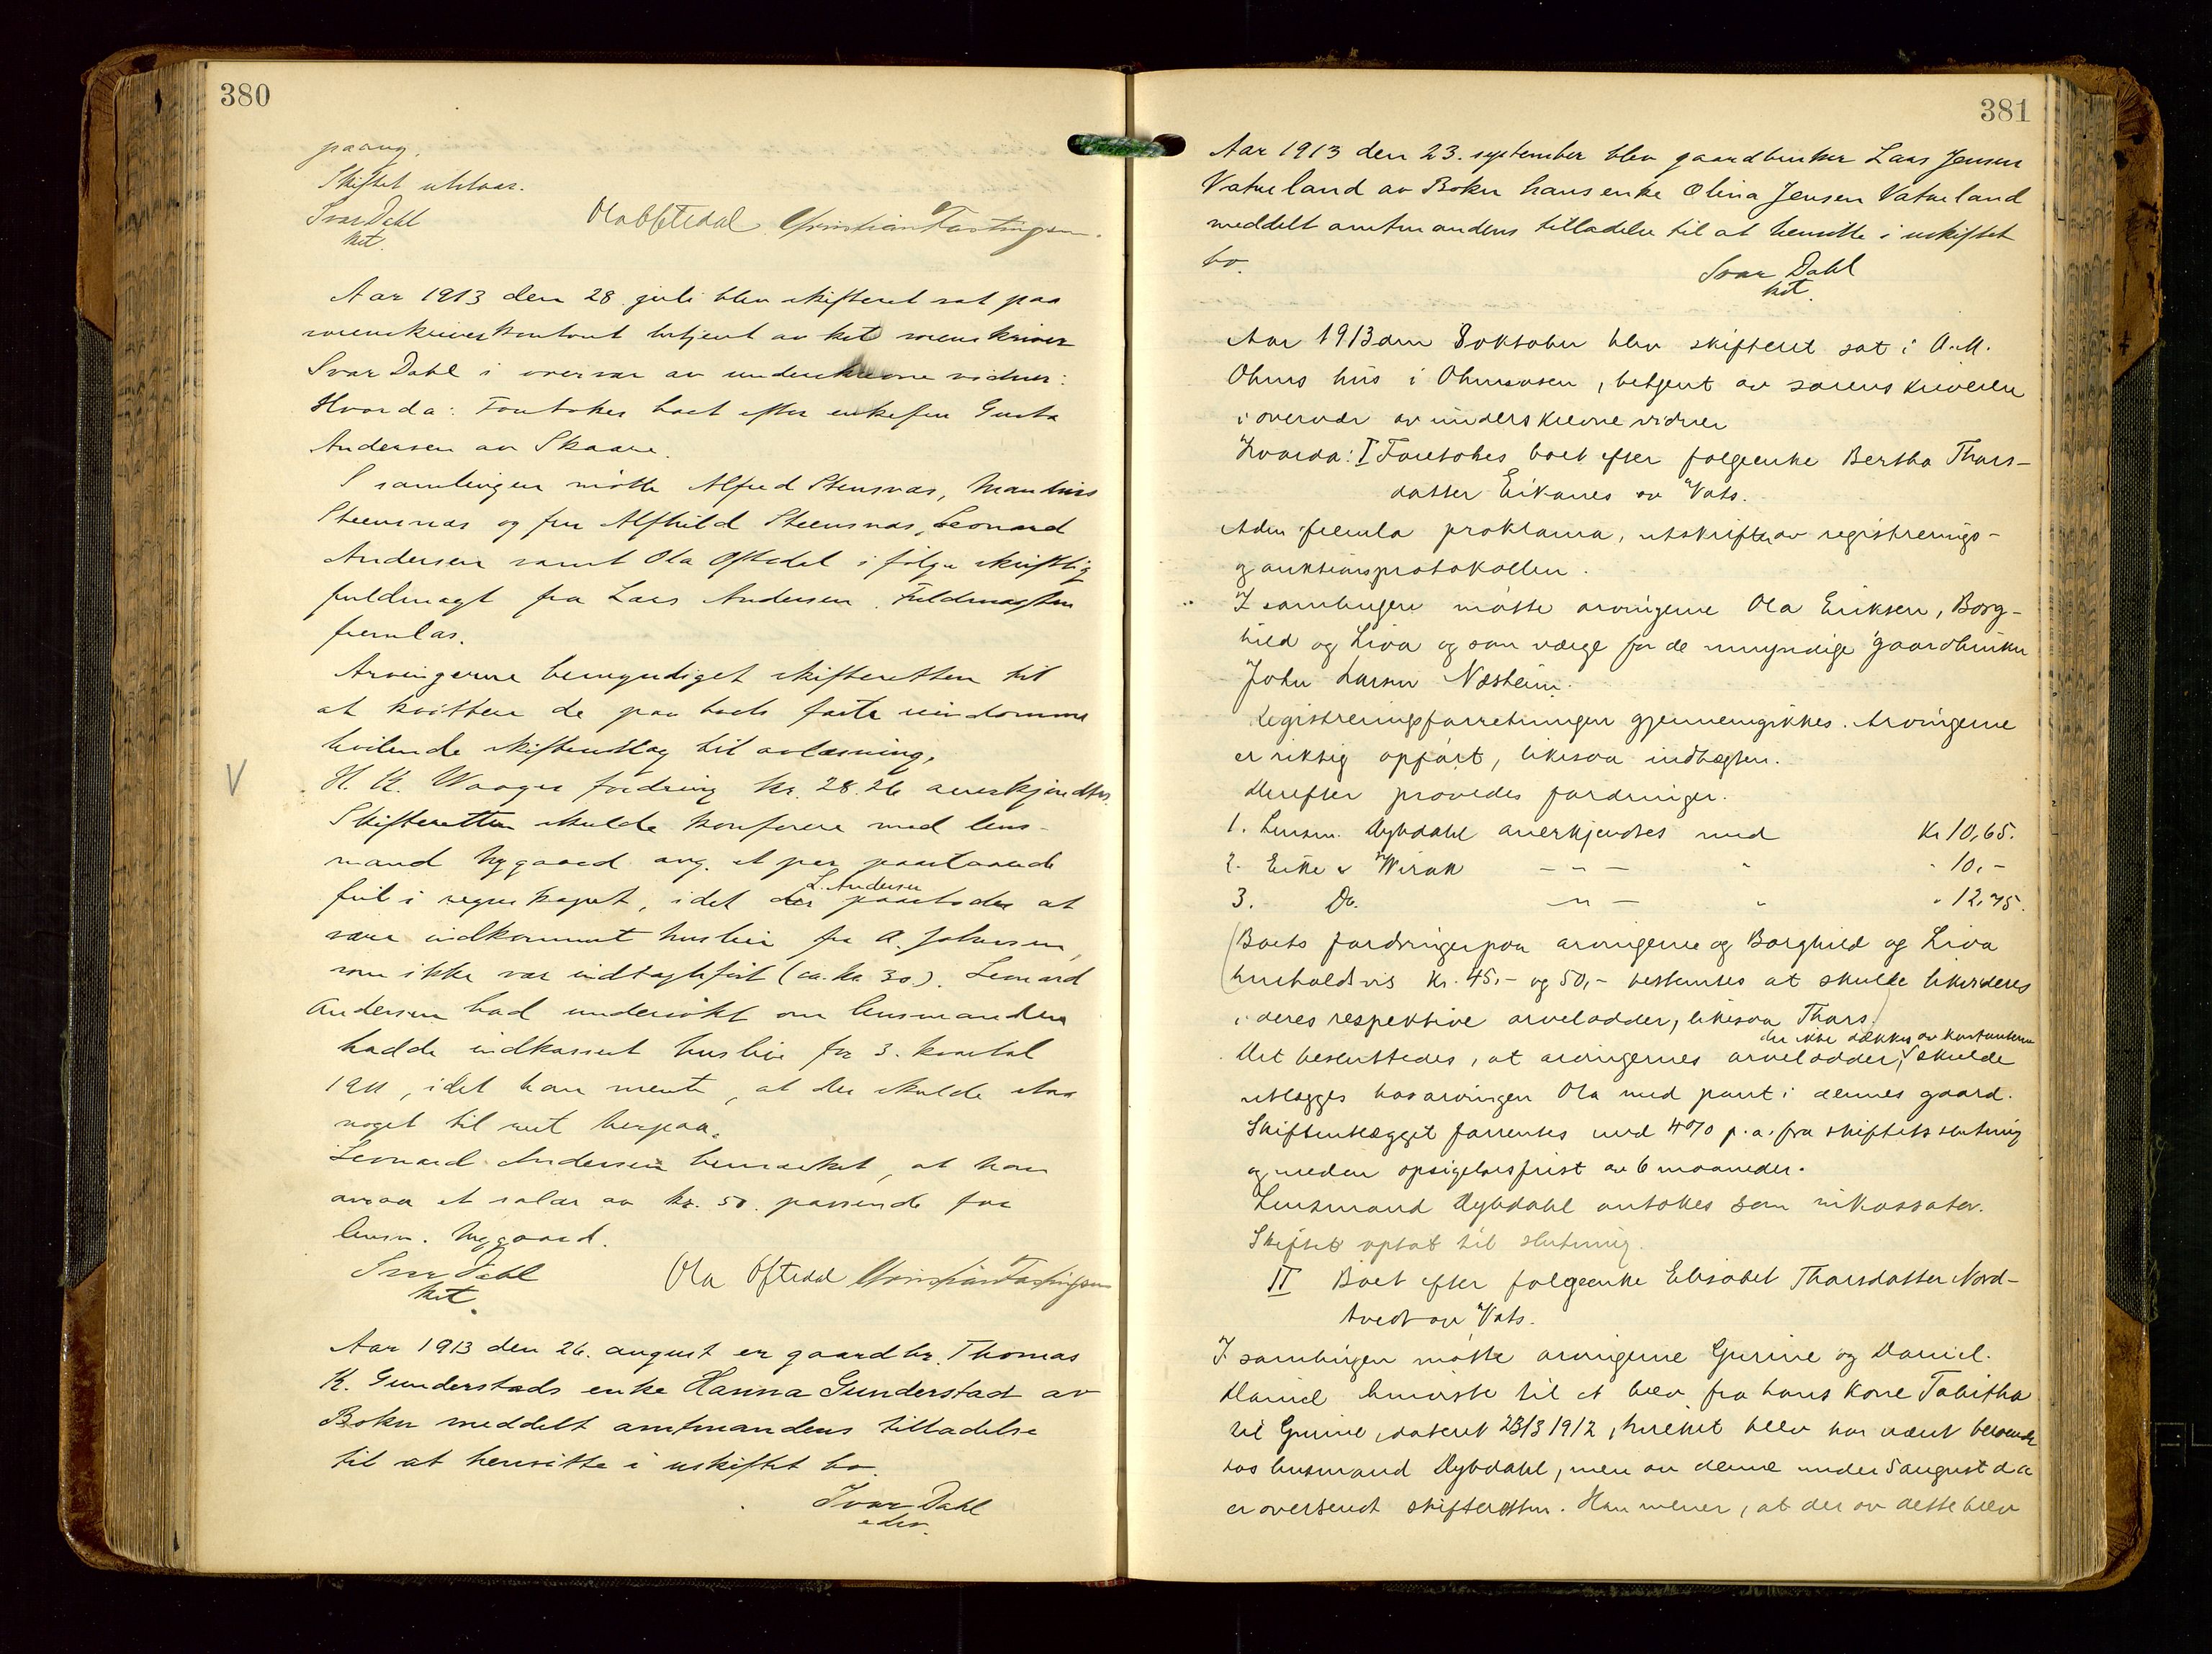 380
paang.
Skiftet utstaar.
Ivar Dahl
kst.
Ola Oftedal Christian Fastingsen.
Aar 1913 den 28. juli blev skifteret sat paa
sorenskriverkontoret betjent av kst sorenskriver
Ivar Dahl i overvær av underskrevne vidner:
Hvorda: Foretokes boet efter enkefru Gurta
Andersen av Skaare.
I samlingen møtte Alfred Stensnæs, Mandius
Steensnæs og fru Alfhild Steensnæs, Leonard
Andersen samt Ola Oftedal i følge skriftlig
fuldmagt fra Lars Andersen. Fuldmagten
fremlas.
Arvingerne bemyndiget skifteretten til
at kvittere de paa boets faste eiendomme
hvilende skifteutlæg til avlæsning.
V H. K. Waages fordring kr. 28.26 anerkjendtes.
Skifteretten skulde konferere med lens-
mand Nygaard ang. et par paastaaede
feil i regnskapet, idet der L. Andersen paastodes at
være indkommet husleie fra A. Johnsen,
som ikke var indtægtsført (ca. kr 30.). Leonard
Andersen bad undersøkt om lensmanden
hadde indkassert husleie for 3. kvartal
1911, idet han mente, at der skulde staa
noget til rest herpaa.
Leonard Andersen bemærket, at han
ansaa et salær av kr. 50. passende for
lensm. Nygaard.
Ivar Dahl
kst.
Ola Oftedal Christian Fastingsen
Aar 1913 den 26. august er gaardbr. Thomas
K. Gunderstads enke Hanna Gunderstad av
Bokn meddelt amtmandens tilladelse
til at hensitte i uskiftet bo.
Ivar Dahl
edsv.
381
Aar 1913 den 23. september blev gaardbruker Lars Jensen
Vatneland av Bokn hans enke Olina Jensen Vatneland
meddelt amtmandens tilladelse til at hensitte i uskiftet
bo.
Ivar Dahl
kst.
Aar 1913 den 8 oktober blev skifteret sat i O. M.
Ølmes hus i Ølensosen, betjent av sorenskriveren
i overvær av underskrevne vidner
Hvorda: I Foretokes boet efter følgeenke Bertha Thors-
datter Eikanes av Vats.
Adm fremla proklama, utskrifter av registrerings-
og auktionsprotokollen.
I samlingen møtte arvingerne Ola Eriksen, Borg-
hild og Liva og som værge for de umyndige gaardbruker
John Larsen Næsheim.
Registreringsforretningen gjennemgikkes. Arvingerne
er riktig opført, likesaa indtægten.
Derefter prøvedes fordringer.
1. Lensm. Dybdahl anerkjendtes med Kr 10,65.
2. Eike & Wirak — " — " - 10,-
3. Do. — " — " " 12,75.
(Boets fordringer paa arvingerne og Borghild og Liva
(henholdsvis Kr. 45,- og 50,- bestemtes at skulle likvideres
i deres respektive arvelodder, likesaa Thors.)
Det besluttedes, at arvingernes arvelodder, der ikke dækkes av kontanterne skulde
utlægges hos arvingen Ola med pant i dennes gaard.
Skifteutlægget forrentes med 4% p.a. fra skiftets slutning
og med en opsigelsesfrist av 6 maaneder.
Lensmand Dybdahl antokes som inkassator.
Skiftet optat til slutning.
II Boet efter følgeenke Elisabet Thorsdatter Nord-
tvedt av Vats.
I samlingen møtte arvingerne Gurine og Daniel.
Daniel henviste til et brev fra hans kone Tabitha
til Gurine, dateret 23/3 1912, hvilket brev har været beroende
hos lensmand Dybdahl, men av denne under 5 august d.a.
er oversendt skifteretten. Han mener, at der av dette brev